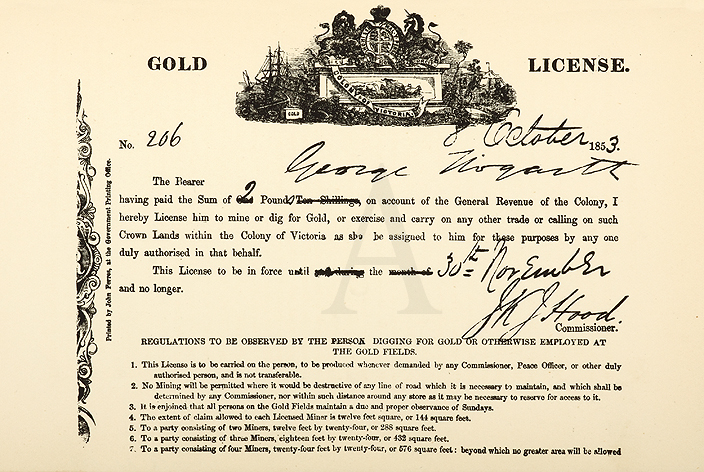 GOLD LICENSE.
COLONY OF VICTORIA
GOLD
No. 206 8 October 1853.
George Hogarth
The Bearer
having paid the Sum of One 2 Pounds Ten Shillings, on account of the General Revenue of the Colony, I
hereby License him to mine or dig for Gold, or exercise and carry on any other trade or calling on such
Crown Lands within the Colony of Victoria as shall be assigned to him for these purposes by any one
duly authorised in that behalf.
This License to be in force until and during the month of 30th November
and no longer.
Commissioner.
REGULATIONS TO BE OBSERVED BY THE PERSON DIGGING FOR GOLD OR OTHERWISE EMPLOYED AT
THE GOLD FIELDS.
1. This License is to be carried on the person, to be produced whenever demanded by any Commissioner, Peace Officer, or other duly
authorised person, and is not transferable.
2. No Mining will be permitted where it would be destructive of any line of road which it is necessary to maintain, and which shall be
determined by any Commissioner, nor within such distance around any store as it may be necessary to reserve for access to it.
3. It is enjoined that all persons on the Gold Fields maintain a due and proper observance of Sundays.
4. The extent of claim allowed to each Licensed Miner is twelve feet square, or 144 square feet.
5. To a party consisting of two Miners, twelve feet by twenty-four, or 288 square feet.
6. To a party consisting of three Miners, eighteen feet by twenty-four, or 432 square feet.
7. To a party consisting of four Miners, twenty-four feet by twenty-four, or 576 square feet: beyond which no greater area will be allowed
Printed by John Ferres, at the Government Printing Office.
A